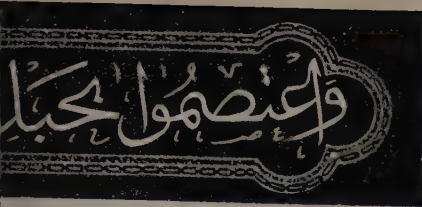 واعتصموا بحبل